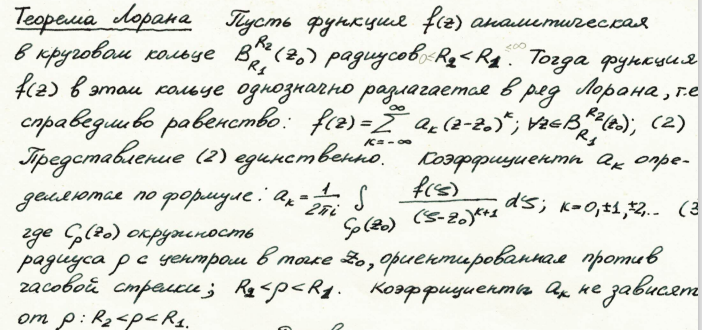 Теорема Лорана Пусть функция f(z) аналитическая
в круговом кольце B_{R_1}^{R_2}(z_0) радиусов 0≤R_2<R_1≤∞. Тогда функция
f(z) в этом кольце однозначно разлагается в ряд Лорана, т.е
справедливо равенство: f(z)=∑_{k=-∞}^{∞} a_k (z-z_0)^k; ∀z∈B_{R_1}^{R_2}(z_0); (2)
Представление (2) единственно. Коэффициенты a_k опре-
деляются по формуле: a_k = 1/2πi ∫_{C_ρ(z_0)} f(ζ)/(ζ-z_0)^{k+1} dζ; k=0,±1,±2... (3
где C_ρ(z_0) окружность
радиуса ρ с центром в точке z_0, ориентированная против
часовой стрелки; R_2<ρ<R_1. Коэффициенты a_k не зависят
от ρ: R_2<ρ<R_1.